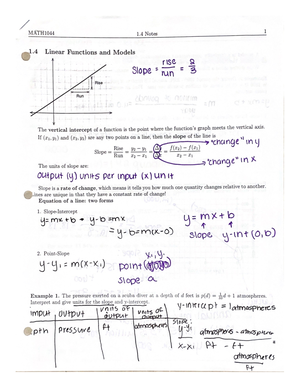 MATH1044 1.4 Notes 1
1.4 Linear Functions and Models
Slope = rise/run = 2/3
Rise
Run
The vertical intercept of a function is the point where the function's graph meets the vertical axis.
If (x₁, y₁) and (x₂, y₂) are any two points on a line, then the slope of the line is
"change" in y
Slope = Rise/Run = y₂ − y₁/x₂ − x₁ = = f(x₂) − f(x₁)/x₂ − x₁
"change" in x
The units of slope are:
output (y) units per input (x) unit
Slope is a rate of change, which means it tells you how much one quantity changes relative to another.
Lines are unique in that they have a constant rate of change!
Equation of a line: two forms
1. Slope-Intercept
y=mx+b y-b=mx
=y-b=m(x-0)
y=mx+b
slope y-int (0,b)
2. Point-Slope
y-y₁=m(x-x₁)
x₁, y₁
point
slope a
Example 1. The pressure exerted on a scuba diver at a depth of d feet is p(d) = d + 1 atmospheres.
Interpret and give units for the slope and p-intercept.
y-intercept = 1 atmospheres
input output units of output units of output
depth pressure ft atmospheres
slope:
y-y₁/x-x₁
atmospheres - atmospheres
ft - ft
atmospheres
ft